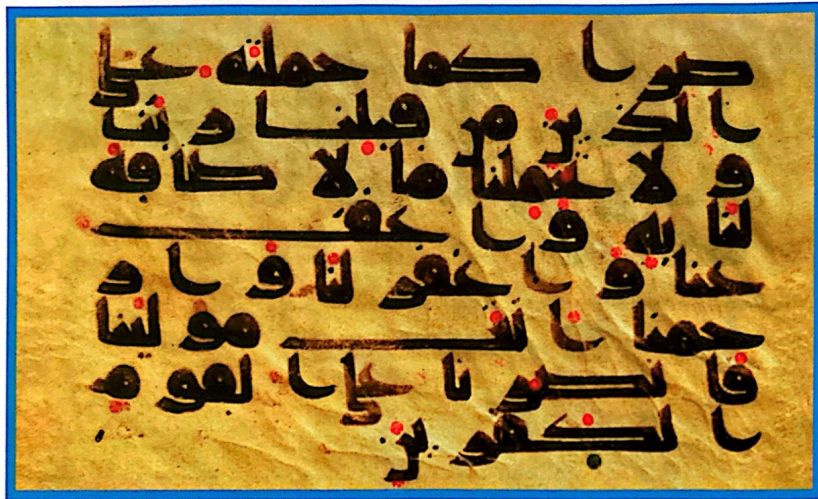 صرا كما حملته على
الذين من قبلنا ربنا
و لا تحملنا ما لا طاقة
لنا به و اعف
عنا و اغفر لنا و ا ر
حمنا انت مولينا
فا نصر نا على القوم
الكفرين